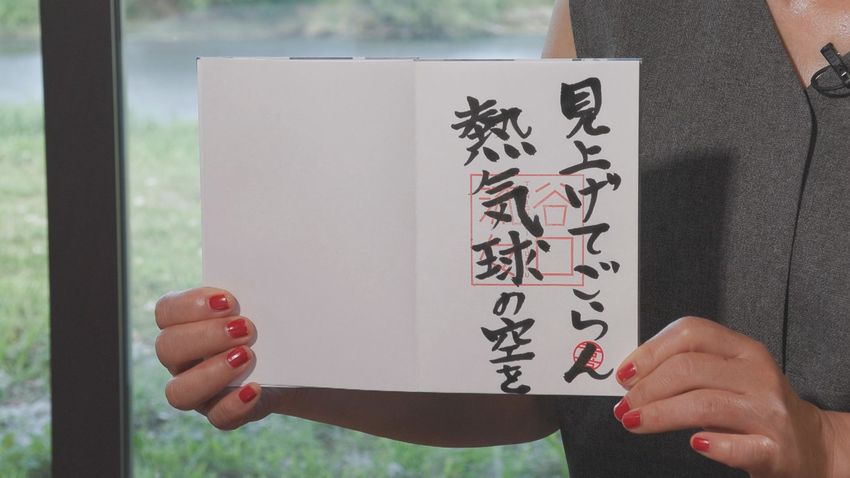 見上げてごらん
熱気球の空を
谷口